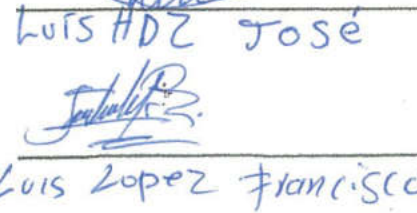 Luis HDZ José
Luis Lopez Francisco